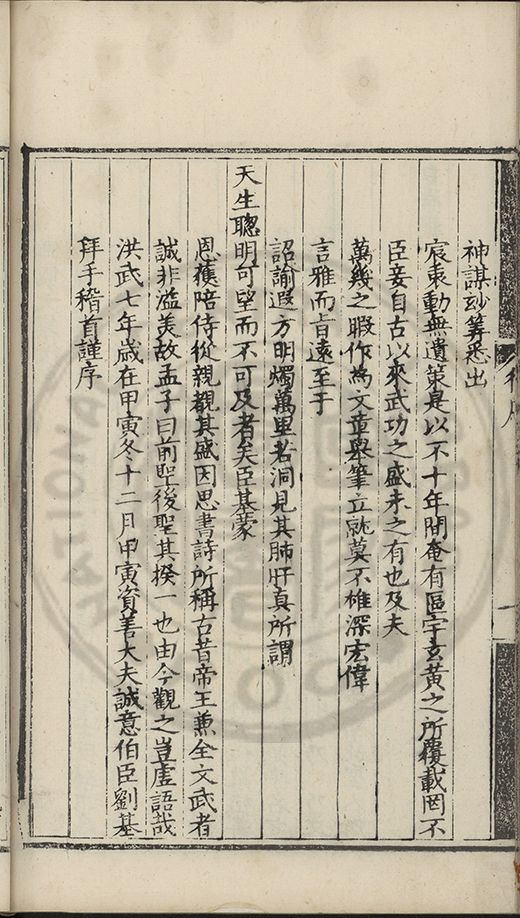 神謀玅筭悉出
宸衷動無遺策是以不十年間奄有區宇玄黃之所覆載罔不
臣妾自古以來武功之盛未之有也及夫
萬幾之暇作為文章舉筆立就莫不雄深宏偉
言雅而旨遠至于
詔諭遐方明燭萬里若洞見其肺肝真所謂
天生聰明可望而不可及者矣臣基蒙
恩獲陪侍從親覩其盛因思書詩所稱古昔帝王兼全文武者
誠非溢美故孟子曰前聖後聖其揆一也由今觀之豈虛語哉
洪武七年歲在甲寅冬十二月甲寅資善大夫誠意伯臣劉基
拜手稽首謹序